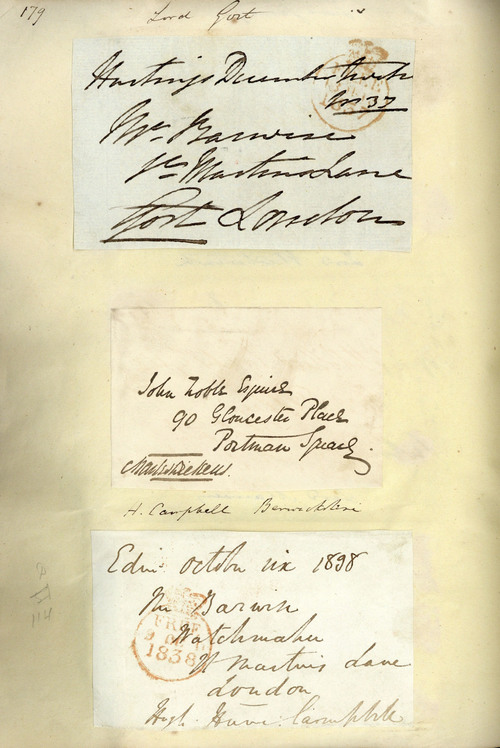 179
Lord Gort
Hastings December twelve
1837
1837
Mr. Barwise
St. Martins Lane
Gort London
John Noble Esquire
90 Gloucester Place
Portman Square
Charles Dickens.
H. Campbell Berwickshire
Edinr. October six 1838
Mr Barwise
Watchmaker
St Martins Lane
London
FREE
1838
Hugh Hume Campbell
114